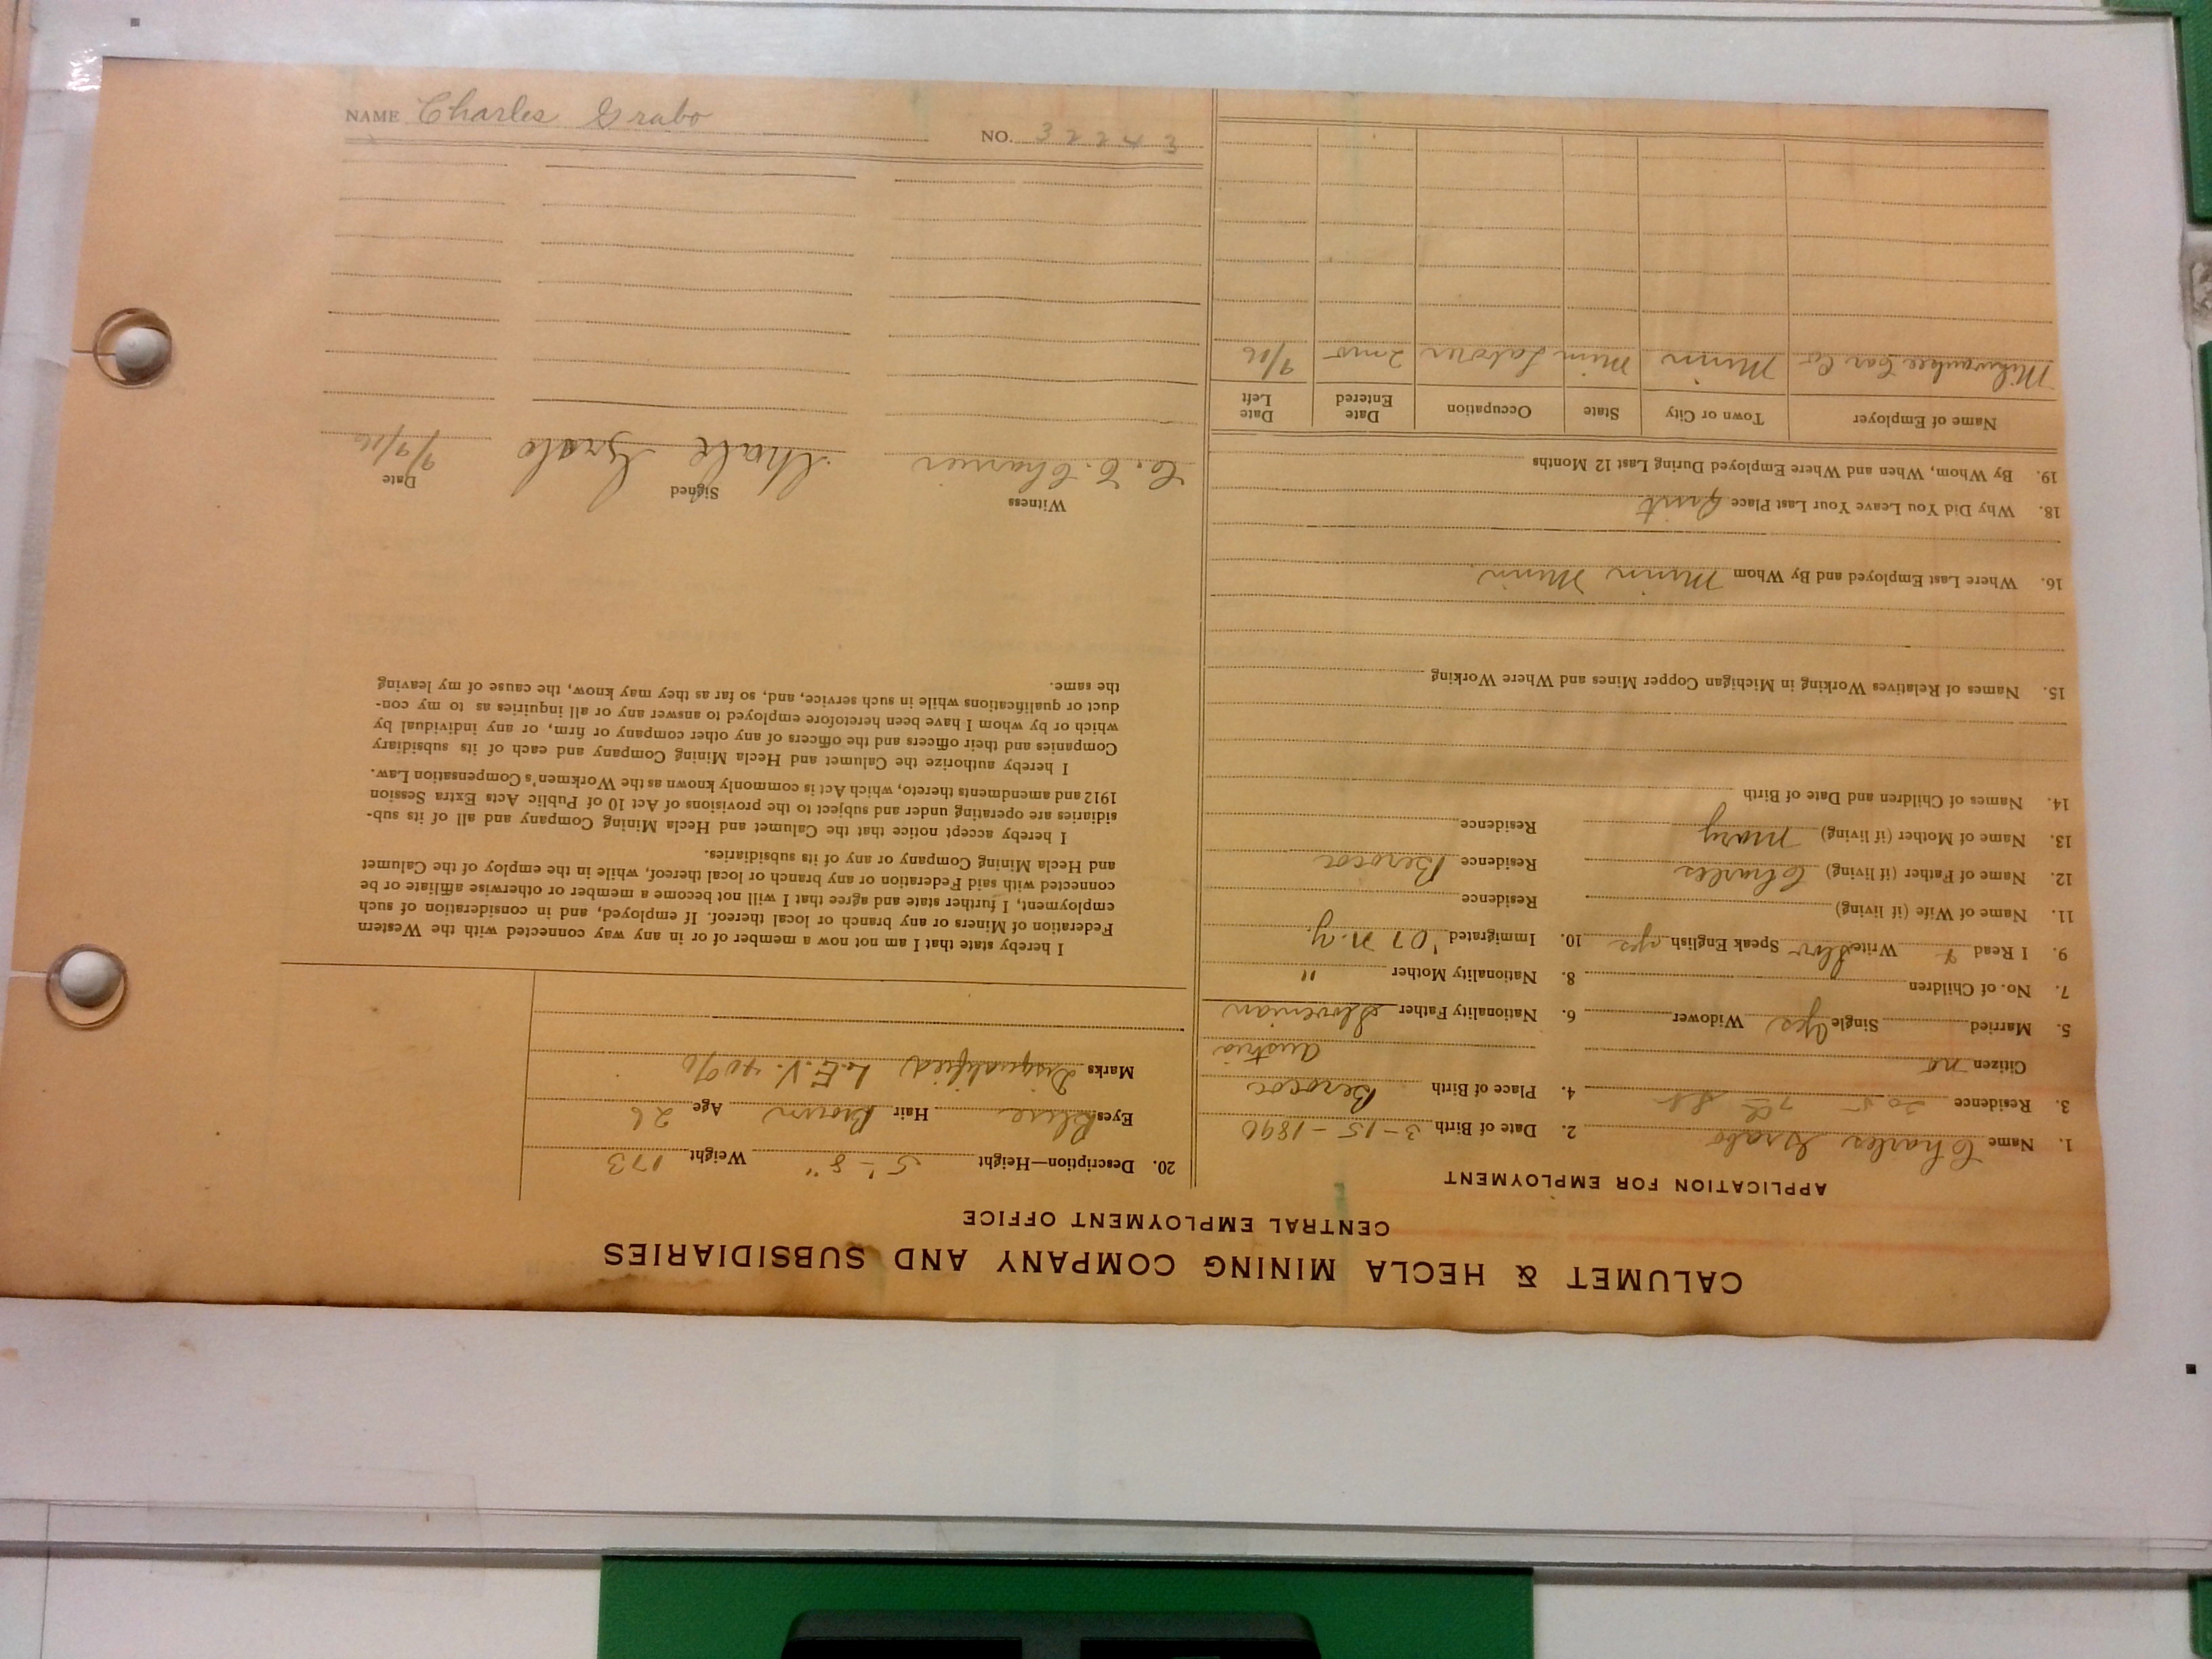 NAME Charles Grabo NO. 32243
CALUMET & HECLA MINING COMPANY AND SUBSIDIARIES
CENTRAL EMPLOYMENT OFFICE
APPLICATION FOR EMPLOYMENT
1. Name Charles Grabo 2. Date of Birth 3-15-1890
3. Residence 205 7th St 4. Place of Birth
Citizen no Austria
5. Married Single yes Widower 6. Nationality Father Slovenian
7. No. of Children 8. Nationality Mother "
9. I Read + Write Slov Speak English yes 10. Immigrated '07 N.Y.
11. Name of Wife (if living) Residence
12. Name of Father (if living) Charles Residence
13. Name of Mother (if living) Mary Residence
14. Names of Children and Date of Birth
15. Names of Relatives Working in Michigan Copper Mines and Where Working
16. Where Last Employed and By Whom Minn Minn.
18. Why Did You Leave Your Last Place Quit
19. By Whom, When and Where Employed During Last 12 Months
Name of Employer Town or City State Occupation Date Entered Date Left
Milwaukee Car Co Minn Minn Laborer 2 mos 9/16
20. Description—Height 5'-8" Weight 173
Eyes Blue Hair Brown Age 26
Marks Disqualified L.E.V. 40%
I hereby state that I am not now a member of or in any way connected with the Western
Federation of Miners or any branch or local thereof. If employed, and in consideration of such
employment, I further state and agree that I will not become a member or otherwise affiliate or be
connected with said Federation or any branch or local thereof, while in the employ of the Calumet
and Hecla Mining Company or any of its subsidiaries.
I hereby accept notice that the Calumet and Hecla Mining Company and all of its sub-
sidiaries are operating under and subject to the provisions of Act 10 of Public Acts Extra Session
1912 and amendments thereto, which Act is commonly known as the Workmen's Compensation Law.
I hereby authorize the Calumet and Hecla Mining Company and each of its subsidiary
Companies and their officers and the officers of any other company or firm, or any individual by
which or by whom I have been heretofore employed to answer any or all inquiries as to my con-
duct or qualifications while in such service, and, so far as they may know, the cause of my leaving
the same.
Witness Signed Date
Grabo 9/9/16